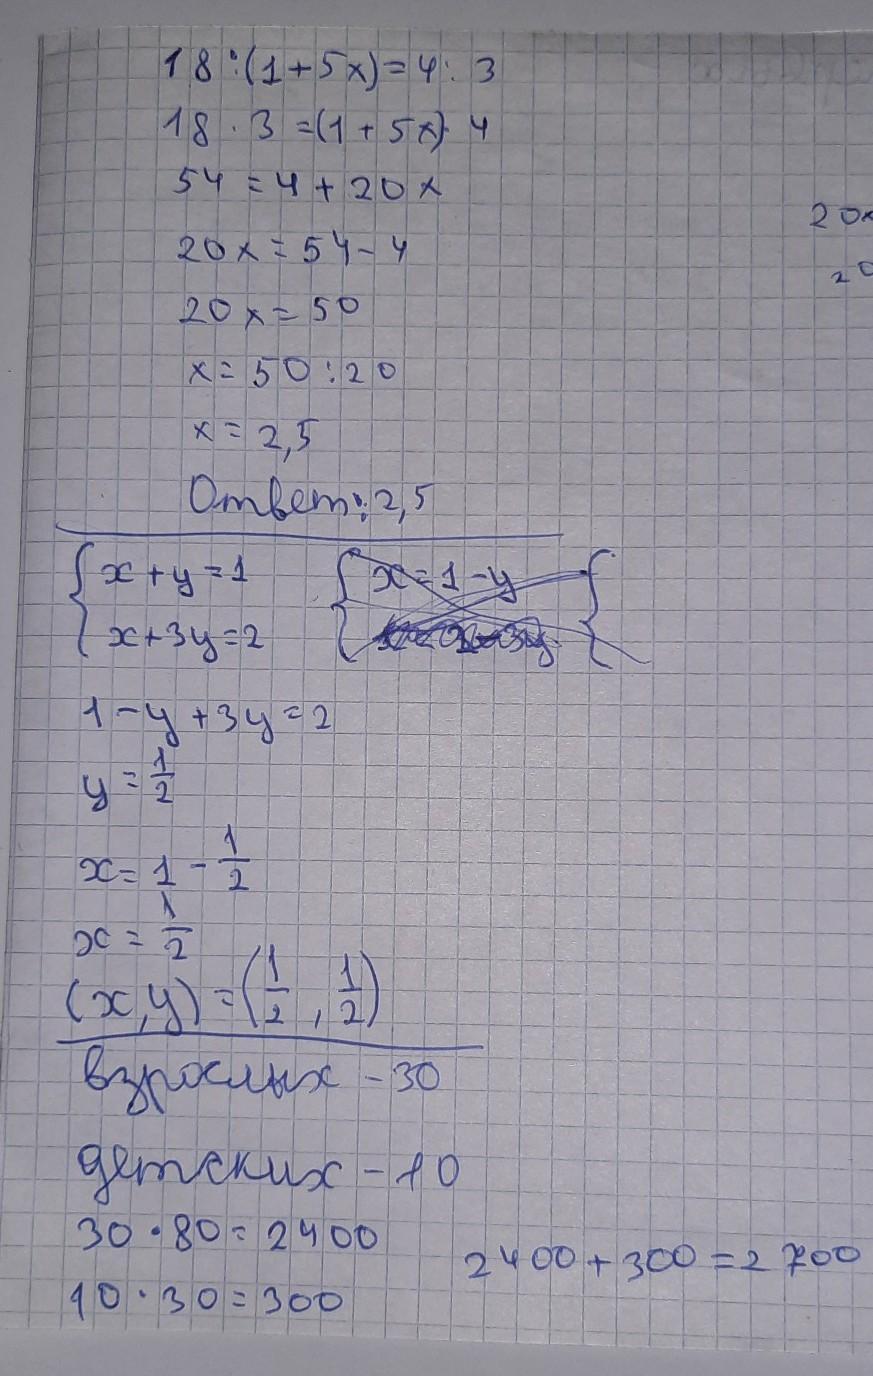 18:(1+5x)=4:3
18·3=(1+5x)·4
54=4+20x
20x=54-4
20x=50
x=50:20
x=2,5
Ответ:2,5
20x
20
{x+y=1
{x=1-y
{
x+3y=2
1-y+3y=2
y=1/2
x=1-1/2
x=1/2
(x,y)=(1/2,1/2)
взрослых-30
детских-10
30·80=2400
2400+300=2700
10·30=300